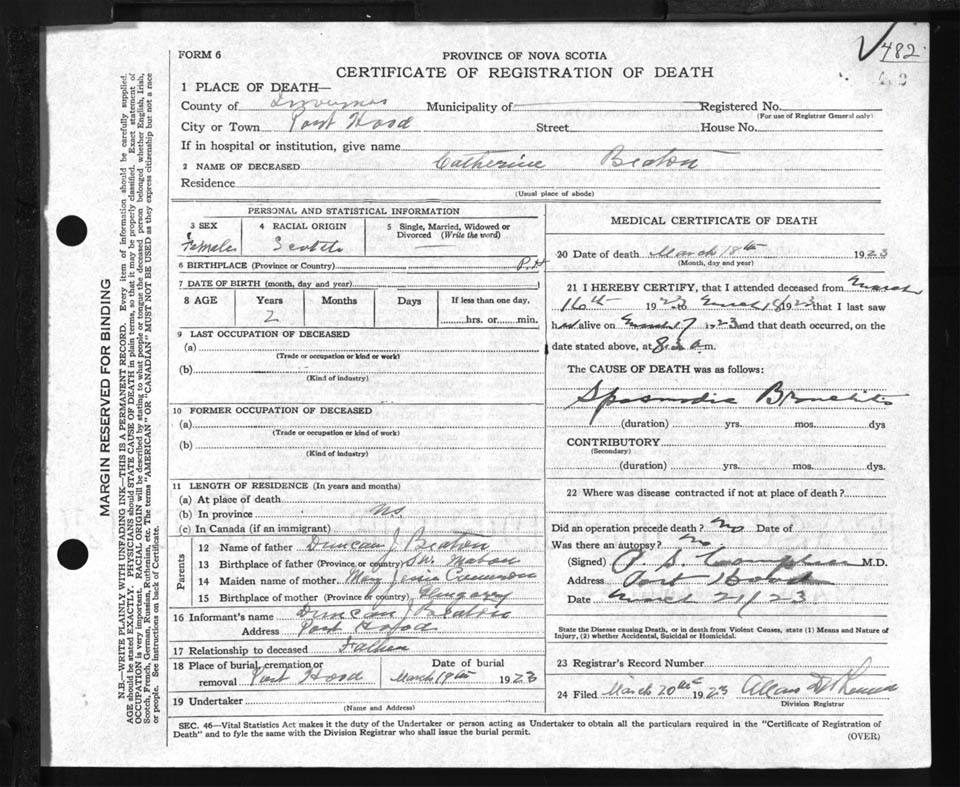 482
FORM 6
PROVINCE OF NOVA SCOTIA
CERTIFICATE OF REGISTRATION OF DEATH
1 PLACE OF DEATH—
County of Inverness Municipality of Registered No.
(For use of Registrar General only)
City or Town Port Hood Street House No.
If in hospital or institution, give name
2 NAME OF DECEASED Catherine Beaton
Residence
(Usual place of abode)
PERSONAL AND STATISTICAL INFORMATION
3 SEX 4 RACIAL ORIGIN 5 Single, Married, Widowed or Divorced (Write the word)
Female Scotch
6 BIRTHPLACE (Province or Country) P.H
7 DATE OF BIRTH (month, day and year)
8 AGE Years Months Days If less than one day,
2 hrs. or min.
9 LAST OCCUPATION OF DECEASED
(a)
(Trade or occupation or kind or work)
(b)
(Kind of industry)
10 FORMER OCCUPATION OF DECEASED
(a)
(Trade or occupation or kind of work)
(b)
(Kind of industry)
11 LENGTH OF RESIDENCE (In years and months)
(a) At place of death
(b) In province
(c) In Canada (if an immigrant)
Parents
12 Name of father Duncan J Beaton
13 Birthplace of father (Province or country) S.W. Mabou
14 Maiden name of mother Mary
15 Birthplace of mother (Province or country) Glengarry
16 Informant's name Duncan J Beaton
Address Port Hood
17 Relationship to deceased Father
18 Place of burial, cremation or removal Port Hood Date of burial March 19th 1923
19 Undertaker
(Name and Address)
MEDICAL CERTIFICATE OF DEATH
20 Date of death March 18th 1923
(Month, day and year)
21 I HEREBY CERTIFY, that I attended deceased from March
16th 1923 to March 18 1923 that I last saw
h alive on March 17 1923 and that death occurred, on the
date stated above, at 8 a m.
The CAUSE OF DEATH was as follows:
Spasmodic Bronchitis
(duration) yrs. mos. dys.
CONTRIBUTORY
(Secondary)
(duration) yrs. mos. dys.
22 Where was disease contracted if not at place of death?
Did an operation precede death? no Date of
Was there an autopsy? no
(Signed) P. S. Campbell M.D.
Address Port Hood
Date March 21/23
State the Disease causing Death, or in death from Violent Causes, state (1) Means and Nature of
Injury, (2) whether Accidental, Suicidal or Homicidal.
23 Registrar's Record Number
24 Filed March 20th 1923
Division Registrar
SEC. 46—Vital Statistics Act makes it the duty of the Undertaker or person acting as Undertaker to obtain all the particulars required in the "Certificate of Registration of
Death" and to fyle the same with the Division Registrar who shall issue the burial permit.
(OVER)
MARGIN RESERVED FOR BINDING
N.B.—WRITE PLAINLY WITH UNFADING INK—THIS IS A PERMANENT RECORD. Every item of information should be carefully supplied.
AGE should be stated EXACTLY. PHYSICIANS should STATE CAUSE OF DEATH in plain terms, so that it may be properly classified. Exact statement of
OCCUPATION is very important. RACIAL ORIGIN will be described by stating to what people or tongue the deceased person belonged whether English, Irish,
Scotch, French, German, Russian, Ruthenian, etc. The terms "AMERICAN" OR "CANADIAN" MUST NOT BE USED as they express citizenship but not a race
or people. See instructions on back of Certificate.